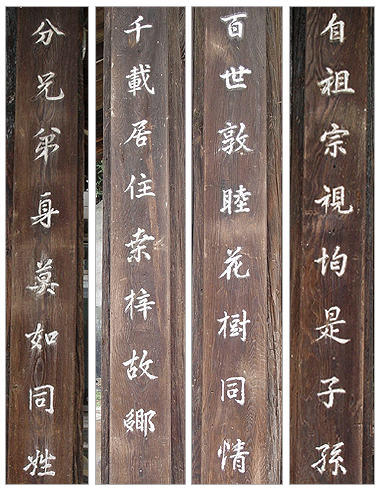 自祖宗視均是子孫
百世敦睦花樹同情
千載居住桒梓故鄉
分兄弟身莫如同姓